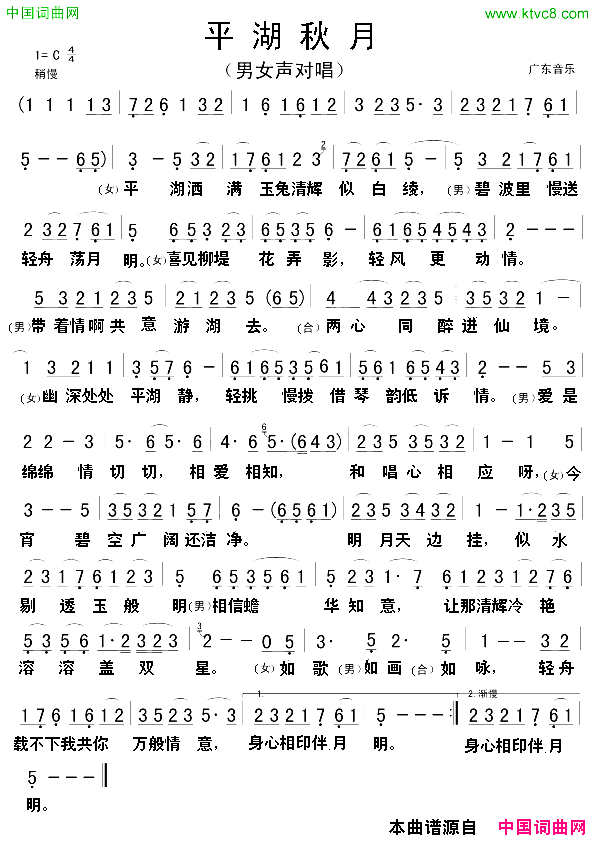 中国词曲网
www.ktvc8.com
平湖秋月
(男女声对唱)
1= C 4/4
稍慢
广东音乐
(1 1 1 1 3 | 7 2 6 1 3 2 | 1 6 1 6 1 2 | 3 2 3 5· 3 | 2 3 2 1 7 6 1 |
5 - - 6 5) | 3 - 5 3 2 | 1 7 6 1 2 3 | 7 2 6 1 5 - | 5 3 2 1 7 6 1 |
(女)平 湖洒 满 玉兔清辉 似 白 绫, (男)碧 波里 慢送
2 3 2 7 6 1 | 5 6 5 3 2 3 | 6 5 3 5 6 - | 6 1 6 5 4 5 4 | 2 - - - |
轻舟 荡月 明。(女)喜见柳堤 花 弄 影, 轻 风 更 动 情。
5 3 2 1 2 3 5 | 2 1 2 3 5 | 1 2 (6 5) | 4 4 3 2 3 5 | 3 5 3 2 1 - |
(男)带 着情啊共 意 游 湖 去。 (合)两心 同 醉 迸 仙 境。
1 3 2 1 1 | 3 5 7 6 - | 6 1 6 5 3 5 6 1 | 5 6 1 6 5 4 3 | 2 - - 5 3 |
(女)幽 深处处 平湖 静, 轻挑 慢拨 借 琴 韵低 诉 情。(男)爱是
2 2 - 3 | 5· 6 5· 6 | 4· 6 5· (6 4 3) | 2 3 5 3 5 3 2 | 1 - 1 5 |
绵绵 情 切切, 相 爱 相知, 和 唱心 相 应 呀,(女)今
3 - - 5 | 3 5 3 2 1 5 7 | 6 - (6 5 6 1) | 2 3 5 3 4 3 2 | 1 - 1· 2 3 5 |
宵 碧 空 广 阔 还洁 净。 明 月天 边 挂, 似 水
2 3 1 7 6 1 2 3 | 5 6 5 3 5 6 1 | 5 2 3 1· 7 | 6 1 2 3 1 2 7 6 |
剔 透 玉 般 明(男)相信蟾 华 知 意, 让那清辉冷 艳
5 3 5 6 1· 2 3 2 3 | 2 - - 0 5 | 3· 5 2· 5 | 1 - - 3 2 |
溶 溶 盖 双 星。 (女)如 歌(男)如 画(合)如 咏, 轻舟
1 7 6 1 6 1 2 | 3 5 2 3 5· 3 | 1. 2 3 2 1 7 6 1 | 5 - - - :| 2.渐慢 2 3 2 1 7 6 1 |
载不下我共你 万般情 意, 身心相印伴月 明。 身心相印伴月
5 - - - ||
明。
本曲谱源自 中国词曲网